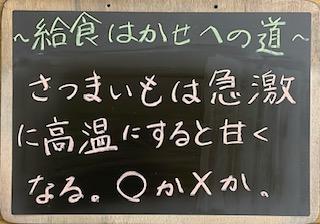 ~給食はかせへの道~
さつまいもは急激
に高温にすると甘く
なる。○か×か。